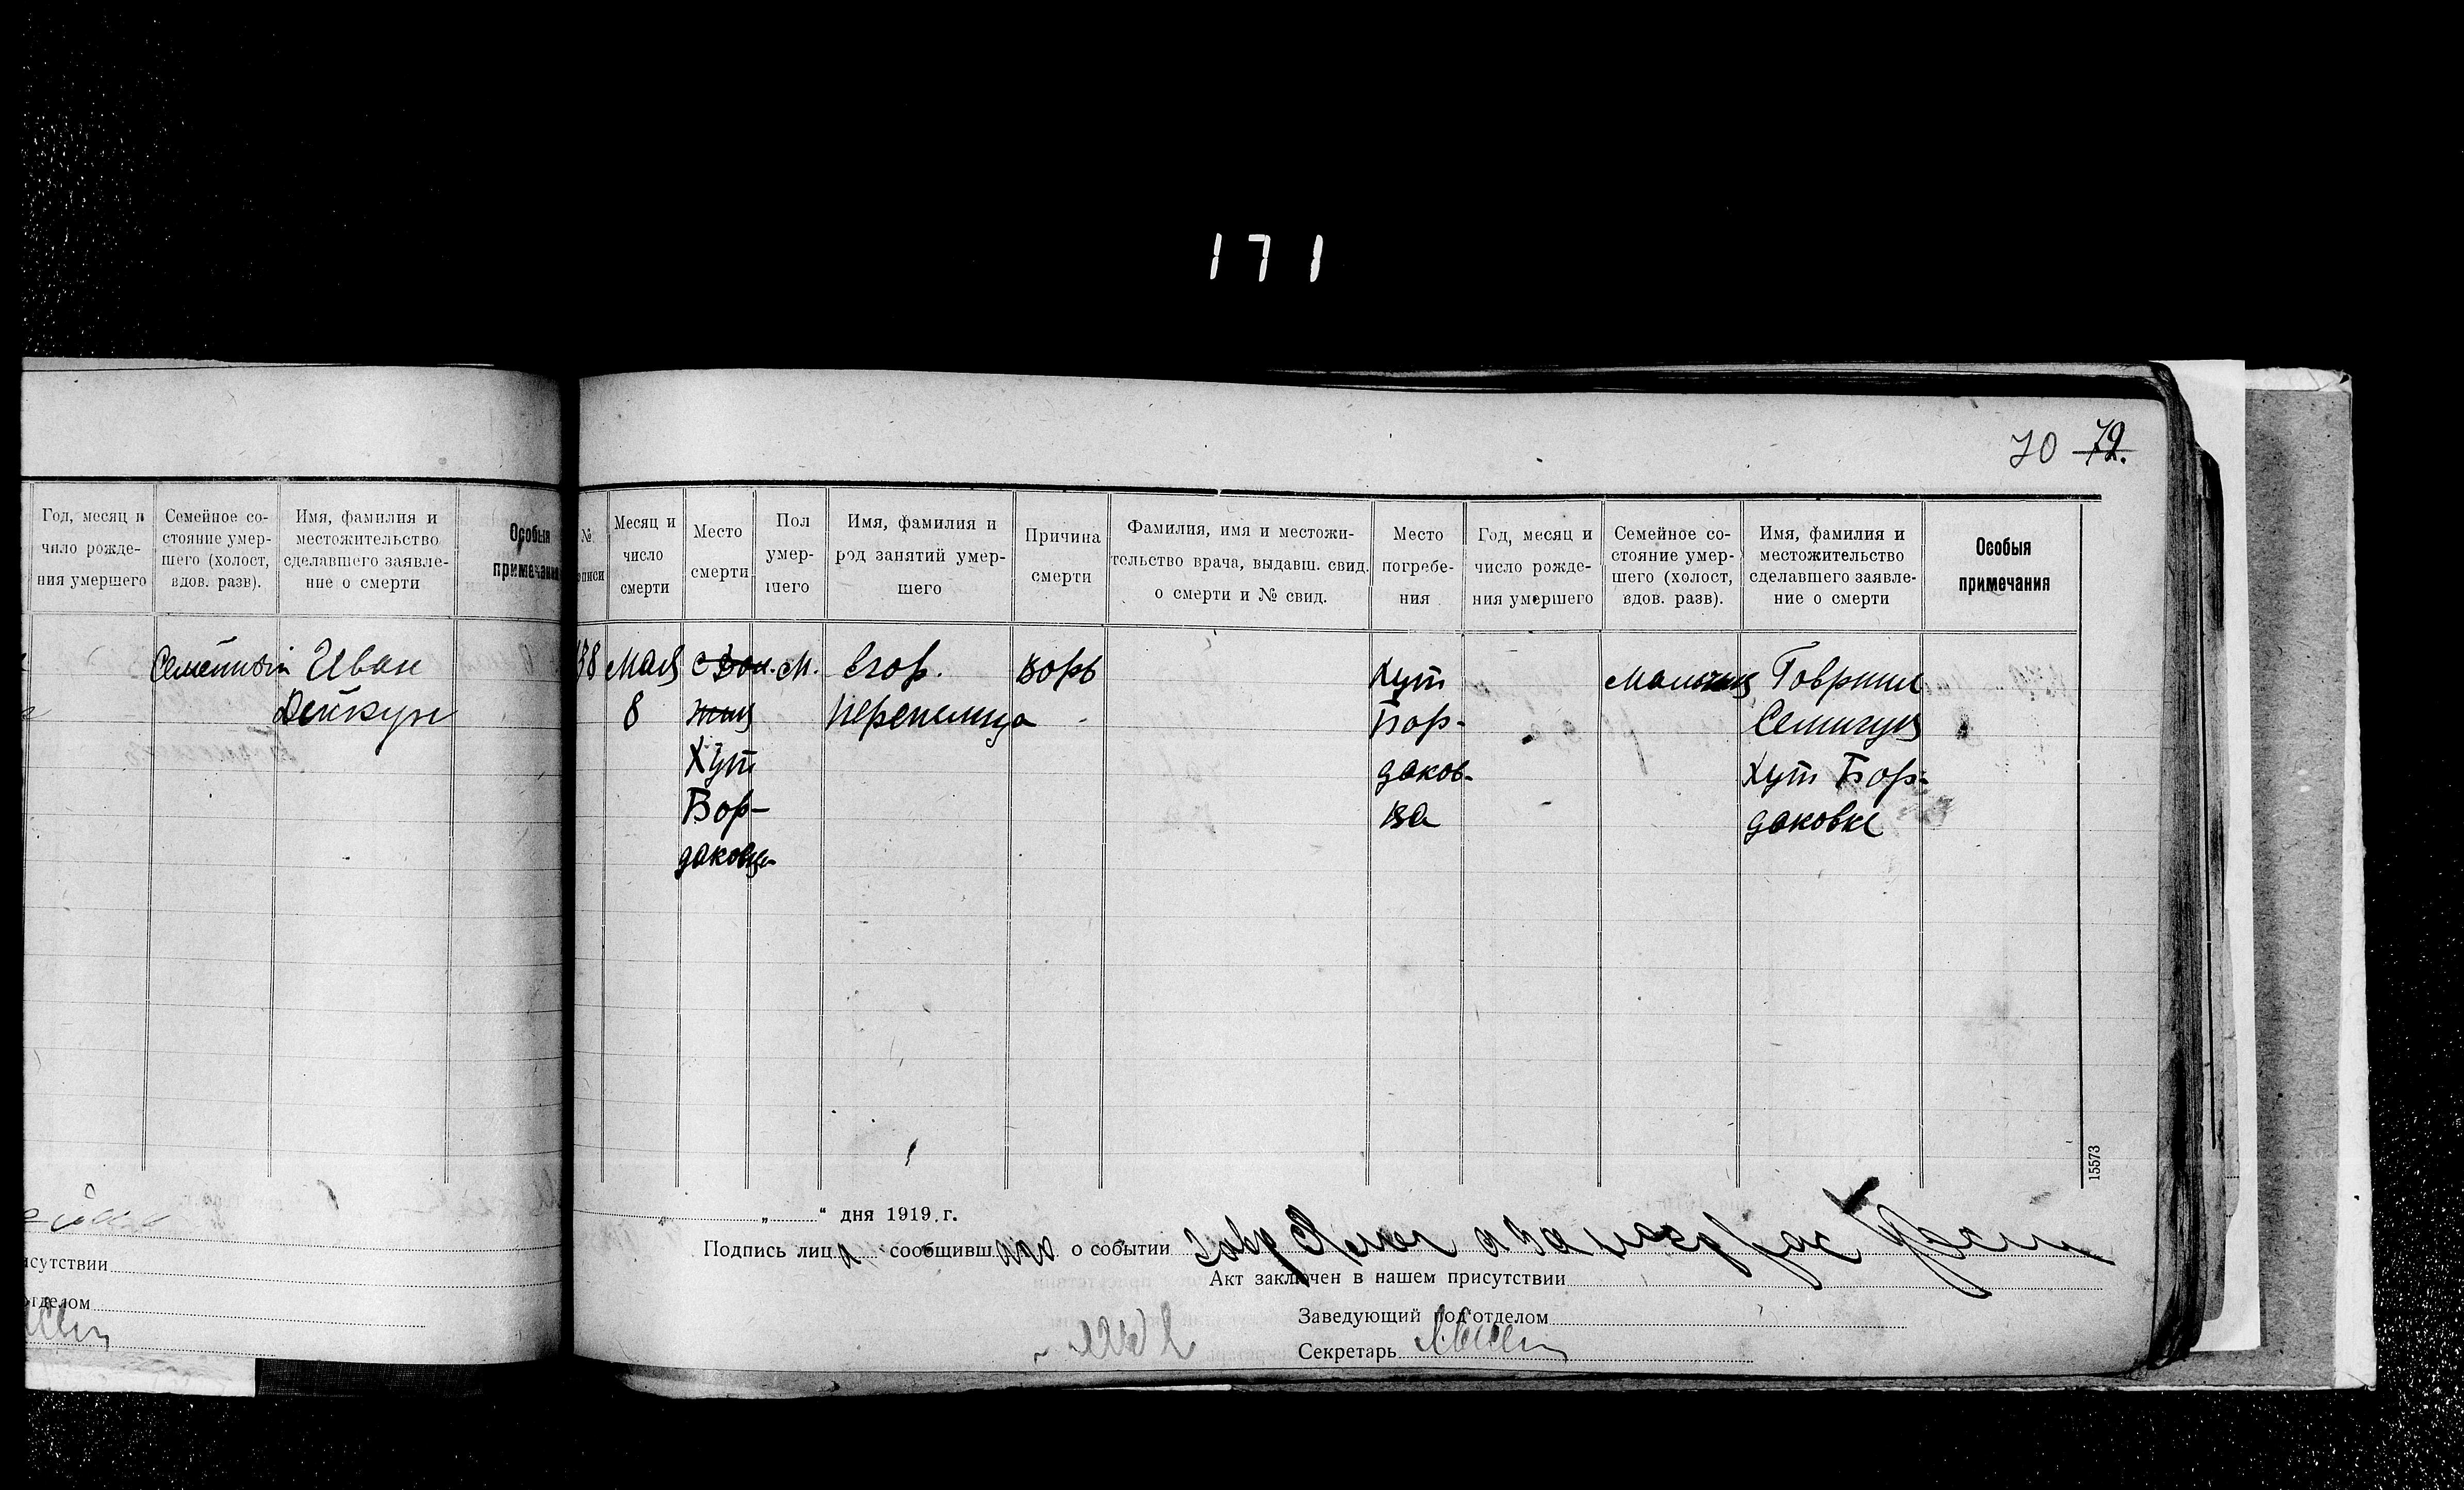 171
70 79.
Год, месяц и число рожде- ния умершего
Семейное со- стояние умер- шего (холост, вдов. разв).
Имя, фамилия и местожительство сделавшего заявле- ние о смерти
Особыя примечания
Семейный
Иван
Дейкун
сутствии
отделом
№
описи
Месяц и
число
смерти
Место
смерти
Пол
умер-
шего
Имя, фамилия и
род занятий умер-
шего
Причина
смерти
Фамилия, имя и местожи-
тельство врача, выдавш. свид.
о смерти и № свид.
Место
погребе-
ния
Год, месяц и
число рожде-
ния умершего
Семейное со-
стояние умер-
шего (холост,
вдов. разв).
Имя, фамилия и
местожительство
сделавшего заявле-
ние о смерти
Особыя
примечания
138
Мая
8
Хут
Бор-
даковка
М.
Егор.
Перепелица
корь
Хут
Бор-
даков-
ка
Мальчик
Говриил
Семигук
Хут Бор-
даковке
15573
„ “ дня 1919 г.
Подпись лица сообщивш о событии
Акт заключен в нашем присутствии
Заведующий подотделом
Секретарь